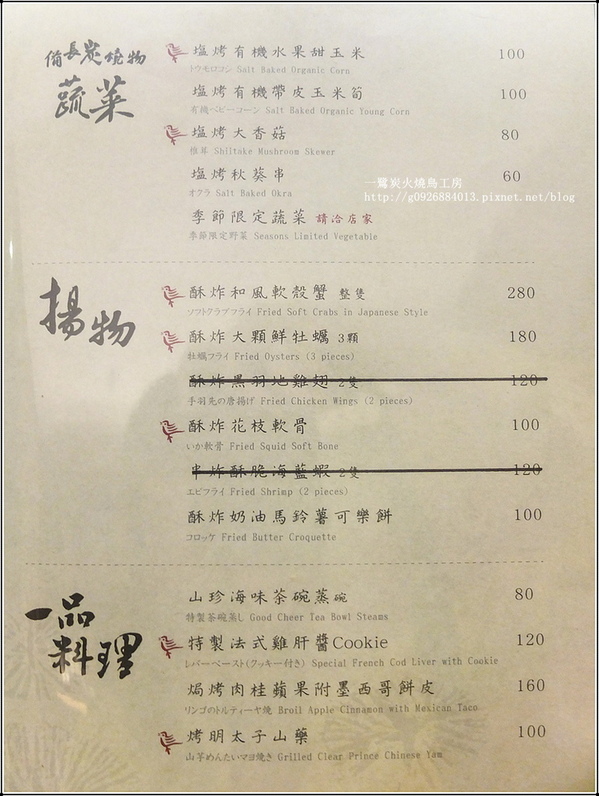 備長炭燒物
蔬菜
塩烤有機水果甜玉米 100
トウモロコシ Salt Baked Organic Corn
塩烤有機帶皮玉米筍 100
有機ベビーコーン Salt Baked Organic Young Corn
塩烤大香菇 80
椎茸 Shiitake Mushroom Skewer
塩烤秋葵串 60
オクラ Salt Baked Okra
一鷺炭火燒鳥工房
http://g0926884013.pixnet.net/blog
季節限定蔬菜 請洽店家
季節限定野菜 Seasons Limited Vegetable
揚物
酥炸和風軟殼蟹 整隻 280
ソフトクラブフライ Fried Soft Crabs in Japanese Style
酥炸大顆鮮牡蠣 3顆 180
牡蠣フライ Fried Oysters (3 pieces)
酥炸黑羽地雞翅 2隻 120
手羽先の唐揚げ Fried Chicken Wings (2 pieces)
酥炸花枝軟骨 100
いか軟骨 Fried Squid Soft Bone
串炸酥脆海藍蝦 2隻 120
エビフライ Fried Shrimp (2 pieces)
酥炸奶油馬鈴薯可樂餅 100
コロッケ Fried Butter Croquette
一品料理
山珍海味茶碗蒸 碗 80
特製茶碗蒸し Good Cheer Tea Bowl Steams
特製法式雞肝醬Cookie 120
レバーペースト(クッキー付き) Special French Cod Liver with Cookie
焗烤肉桂蘋果附墨西哥餅皮 160
リンゴのトルティーヤ焼 Broil Apple Cinnamon with Mexican Taco
烤明太子山藥 100
山芋めんたいマヨ焼き Grilled Clear Prince Chinese Yam